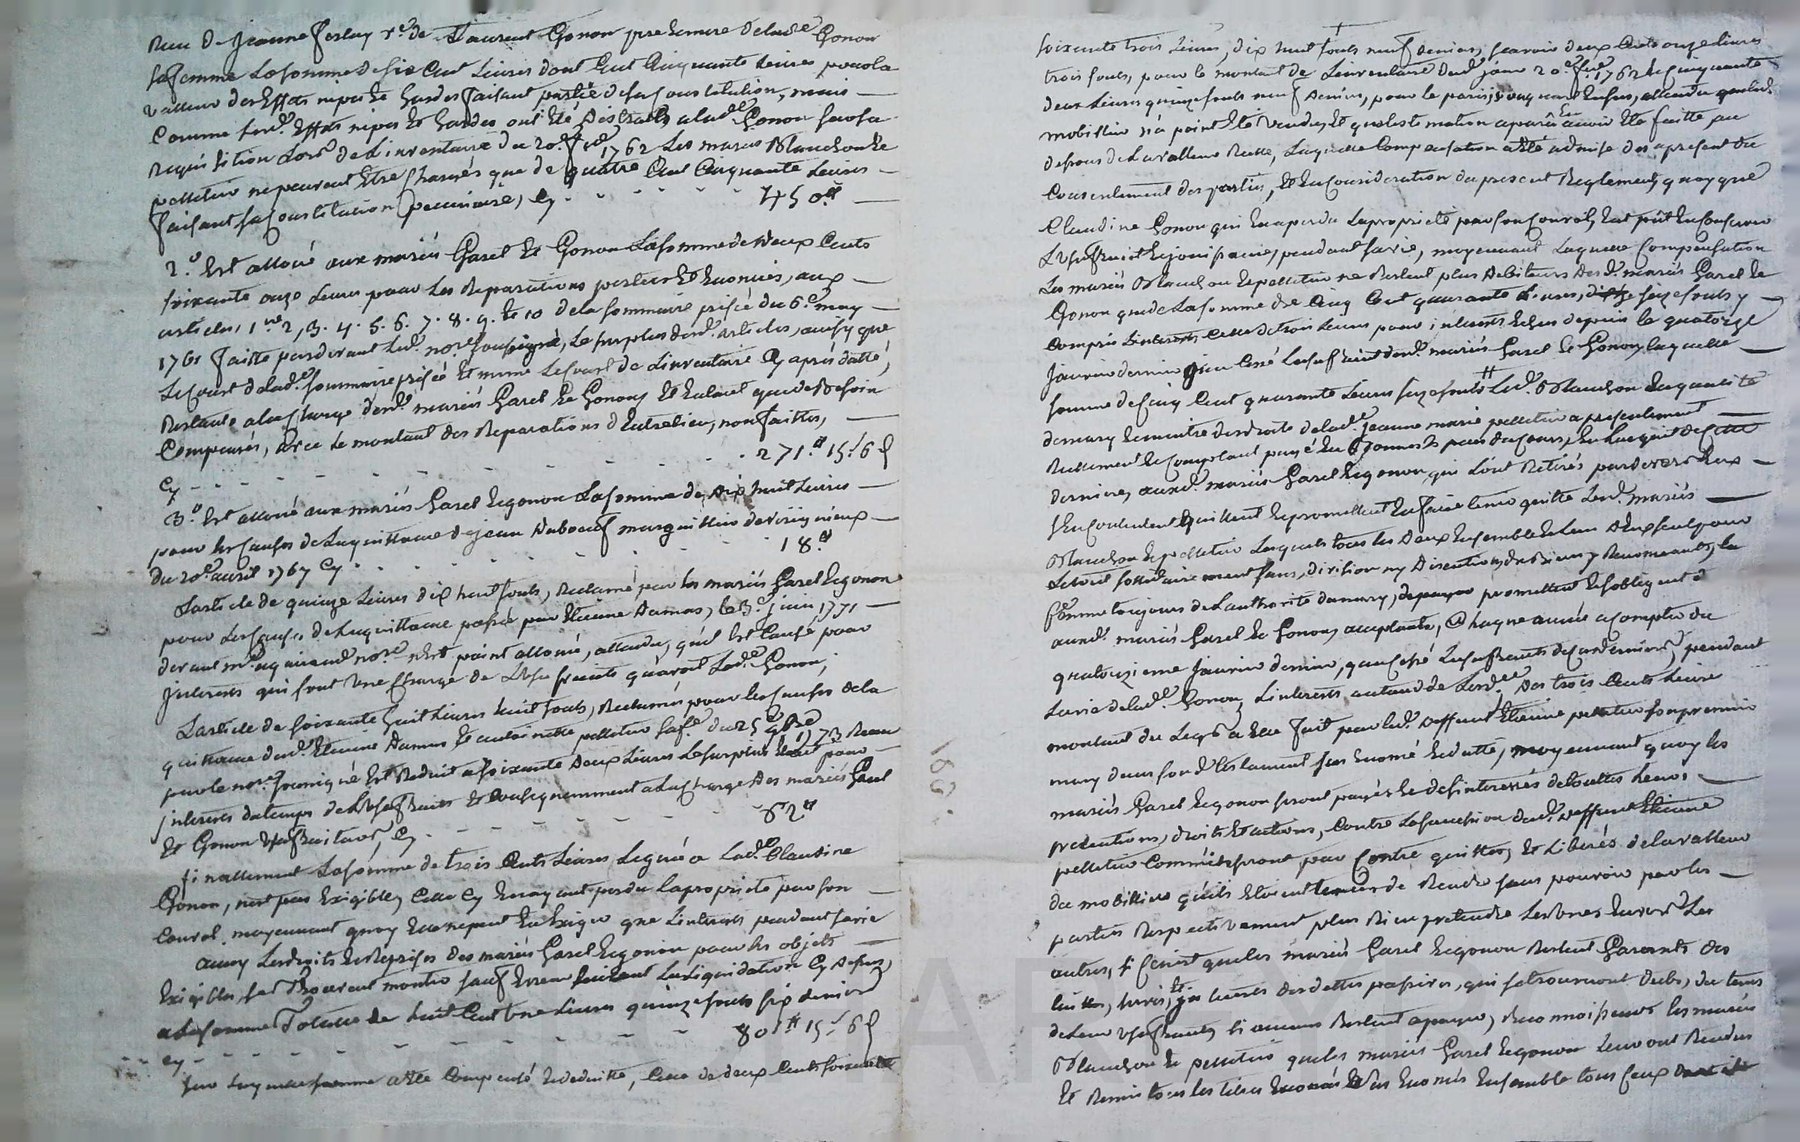 Reçu de Jeanne Ferlay v.e de Laurent Gonon pre
Gonon
sa femme La somme de six Cent Livres dont Cent Cinquante Livres pour la
valleur des Effets nipes et hardes faisant partie de sa Constitution, mais
Comme Lesd. Effets nipes et hardes ont été à lad.e Gonon sur sa
Requisition Lors de L'inventaire du 20.e 1762 Les mariés Blanchon et
pelletier ne peuvent Etre Chargés que de quatre Cent Cinquante Livres
faisant sa Constitution pecuniaire, Cy 450ᵗᵗ
2.o Est alloué aux mariés Garel Et Gonon La somme de Deux Cents
soixante onze Livres pour Les Reparations portées Et Enoncées, aux
articles, 1.er 2, 3. 4. 5. 6. 7. 8. 9. Et 10 de la sommaire prisée du 6.e may
1761 faitte pardevant Led. no.re soussigné, Le surplus desd. articles, ainsy que
Le Court de lad.e sommaire prisée Et même Le de L'inventaire Cy après datté,
Restant a la Charge desd. mariés Garel Et Gonon
Compensés, avec Le montant des Reparations d'Entretien, non faittes,
Cy 271ᵗᵗ 15ˢ 6ᵈ
3.o Est alloué aux mariés Garel Et Gonon La somme de Dix huit Livres
pour Les Causes de La quittance de Jean Duboeuf marguillier de
du 20.e avril 1767 Cy 18ᵗᵗ
L'article de quinze Livres dix huit souls, Reclamé par Les mariés Garel Et Gonon
pour Les Causes de La quittance passée par Etienne Damas, Le 3.e juin 1771
devant m.e no.re n'Est point alloué, attendu, qu'il Est Causé pour
Interests qui font Une Charge de L'Usufruit qu'avoit Lad.e Gonon,
L'article de soixante huit Livres huit souls, Reclamés pour Les Causes de la
quittance dud. Etienne Damas Et pelletier sa f.e du 25 1773 Reçue
par le no.re soussigné Est Reduit a soixante Deux Livres Le surplus pour
interests du temps de L'Usufruit et Consequemment a La Charge Des mariés Garel
Et Gonon Usufruitiers, Cy 62ᵗᵗ
finallement La somme de trois Cents Livres Leguée a Lad.e Claudine
Gonon, n'est pas Exigible, Celle Cy En ayant perdu La proprieté par son
Convol, moyennant quoy Elle ne peut En Exiger que L'interest, pendant sa vie
Ainsy Les droits Et Reprises des mariés Garel Et Gonon pour Les objets
Exigibles, se Trouvent monter sauf Erreur La Liquidation Cy Dessus,
a La somme Totalle de huit Cent Une Livres quinze souls six deniers
Cy 801ᵗᵗ 15ˢ 6ᵈ
sur Laquelle somme a Eté Compensé Et deduitte, Celle de deux Cents soixante
soixante trois Livres, dix huit souls neuf deniers, sçavoir deux Cents onze Livres
trois souls, pour le montant de L'inventaire dud. jour 20.e 1762 Et Cinquante
deux Livres quinze souls neuf Deniers, pour le attendu que led.
mobillier n'a point Eté Vendu, Et que L'estimation a paru avoir Eté faitte au
dessous de La valleur Reelle, Laquelle Compensation a Eté admise du
Consentement des parties, Et En Consideration du present Reglement, quoyque
Claudine Gonon qui En a perdu La proprieté par son Convol,
L'Usufruit Et jouissance, pendant sa vie, moyennant Laquelle Compensation
Les mariés Blanchon Et pelletier ne Restent plus Debiteurs desd. mariés Garel Et
Gonon que de La somme de Cinq Cent quarante Livres, seize souls y
Compris L'interest, Celle de trois Livres pour interests Echus depuis le quatorze
Janvier dernier Cessé L'usufruit desd. mariés Garel Et Gonon, laquelle
somme de Cinq Cent quarante Livres seize souls Led. Blanchon En qualité
de mary Et maitre des droits de lad.e Jeanne marie pelletier a presentement
Reellement Et Comptant payé En Especes du Cours,
derniers, auxd. mariés Garel Et Gonon, qui L'ont Retirés pardevers Eux
s'En Contentent quittent Et promettent En faire tenir quitte Lesd. mariés
Blanchon Et pelletier Lesquels tous les Deux Ensemble Et L'un D'Eux seul pour
Le tout sollidairement sans, division ny Discution y Renonceants, la
femme toujours de L'authorité du mary, promettent Et s'obligent
auxd. mariés Garel Et Gonon, acceptants, Chaque année a Compter du
quatorzieme Janvier dernier, que Cessé L'usufruit de Ces derniers, pendant
La vie de lad.e Gonon, L'interest, au taux de L'ord.ce Des trois Cents Livres
montant du Legs a Elle fait par led. Deffunt Etienne pelletier son premier
mary dans son d. testament sus Enoncé Et datté, moyennant quoy les
mariés Garel Et Gonon seront payés Et desinteressés de touttes Leurs
pretentions, droits Et actions, Contre La succession dud. Deffunt Etienne
pelletier Comme ils seront par Contre quittes, Et Libérés de la valleur
du mobillier qu'ils Etoient tenus de Rendre sans pouvoir par les
parties Respectivement plus Rien pretendre Les Unes Envers Les
autres, si Ce n'est que les mariés Garel Et Gonon Restent Garants des
tailles, des dettes passives, qui se trouveront Dues, du tems
de Leur Usufruit, si aucunes Restent a payer, Reconnoissants les mariés
Blanchon Et pelletier que les mariés Garel Et Gonon Leur ont Rendus
Et Remis tous les titres Enoncés Et Enoncés Ensemble tous Ceux